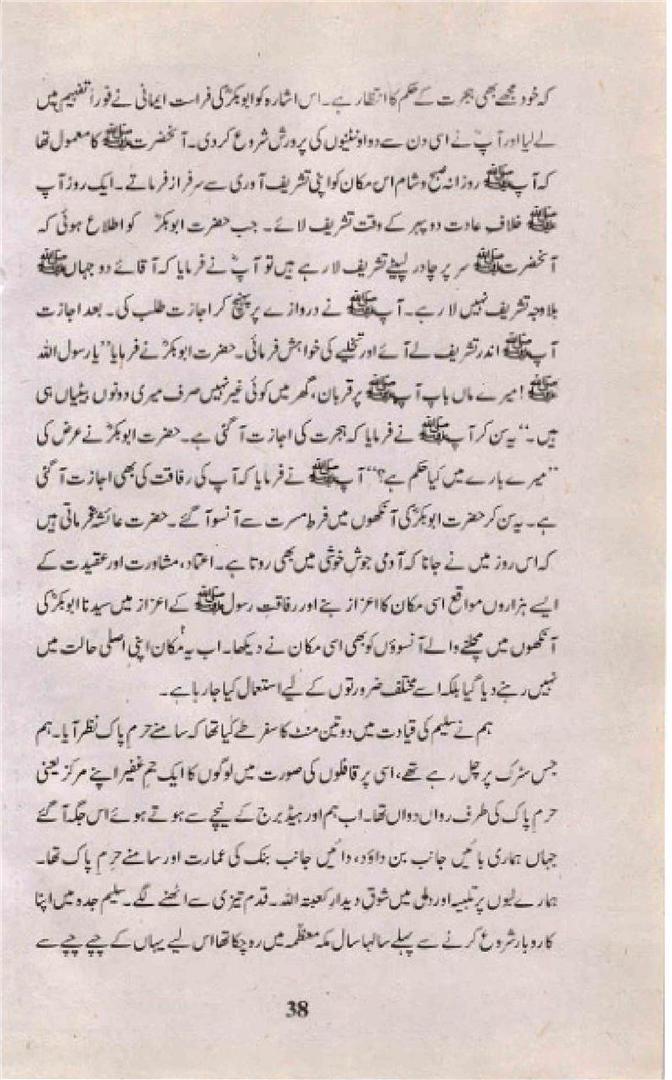 کہ خود مجھے بھی ہجرت کے حکم کا انتظار ہے۔ اس اشارہ کو ابوبکرؓ کی فراست ایمانی نے فوراً تفہیم میں
لے لیا اور آپؓ نے اسی دن سے دو اونٹنیوں کی پرورش شروع کر دی۔ آنحضرت ﷺ کا معمول تھا
کہ آپ ﷺ روزانہ صبح و شام اس مکان کو اپنی تشریف آوری سے سرفراز فرماتے۔ ایک روز آپ
ﷺ خلافِ عادت دوپہر کے وقت تشریف لائے۔ جب حضرت ابوبکرؓ کو اطلاع ہوئی کہ
آنحضرت ﷺ سر پر چادر لپیٹے تشریف لا رہے ہیں تو آپؓ نے فرمایا کہ آقائے دو جہاں ﷺ
بلاوجہ تشریف نہیں لا رہے۔ آپ ﷺ نے دروازے پر پہنچ کر اجازت طلب کی۔ بعد اجازت
آپ ﷺ اندر تشریف لے آئے اور تخلیے کی خواہش فرمائی۔ حضرت ابوبکرؓ نے فرمایا ”یا رسول اللہ
ﷺ! میرے ماں باپ آپ ﷺ پر قربان، گھر میں کوئی غیر نہیں صرف میری دونوں بیٹیاں ہی
ہیں۔“ یہ سن کر آپ ﷺ نے فرمایا کہ ہجرت کی اجازت آ گئی ہے۔ حضرت ابوبکرؓ نے عرض کی
”میرے بارے میں کیا حکم ہے؟“ آپ ﷺ نے فرمایا کہ آپ کی رفاقت کی بھی اجازت آ گئی
ہے۔ یہ سن کر حضرت ابوبکرؓ کی آنکھوں میں فرط مسرت سے آنسو آ گئے۔ حضرت عائشہؓ فرماتی ہیں
کہ اس روز میں نے جانا کہ آدمی جوش خوشی میں بھی روتا ہے۔ اعتماد، مشاورت اور عقیدت کے
ایسے ہزاروں مواقع اسی مکان کا اعزاز بنے اور رفاقتِ رسول ﷺ کے اعزاز میں سیدنا ابوبکرؓ کی
آنکھوں میں مچلنے والے آنسوؤں کو بھی اسی مکان نے دیکھا۔ اب یہ مکان اپنی اصلی حالت میں
نہیں رہنے دیا گیا بلکہ اسے مختلف ضرورتوں کے لیے استعمال کیا جا رہا ہے۔
ہم نے سلیم کی قیادت میں دو تین منٹ کا سفر طے کیا تھا کہ سامنے حرم پاک نظر آیا۔ ہم
جس سڑک پر چل رہے تھے، اسی پر قافلوں کی صورت میں لوگوں کا ایک جمِ غفیر اپنے مرکز یعنی
حرم پاک کی طرف رواں دواں تھا۔ اب ہم اور ہیڈ برج کے نیچے سے ہوتے ہوئے اس جگہ آ گئے
جہاں ہماری بائیں جانب بن داؤد، دائیں جانب بنک کی عمارت اور سامنے حرم پاک تھا۔
ہمارے لبوں پر تلبیہ اور دل میں شوقِ دیدارِ کعبتہ اللہ۔ قدم تیزی سے اٹھنے لگے۔ سلیم جدہ میں اپنا
کاروبار شروع کرنے سے پہلے سالہا سال مکہ معظمہ میں رہ چکا تھا اس لیے یہاں کے چپے چپے سے
38